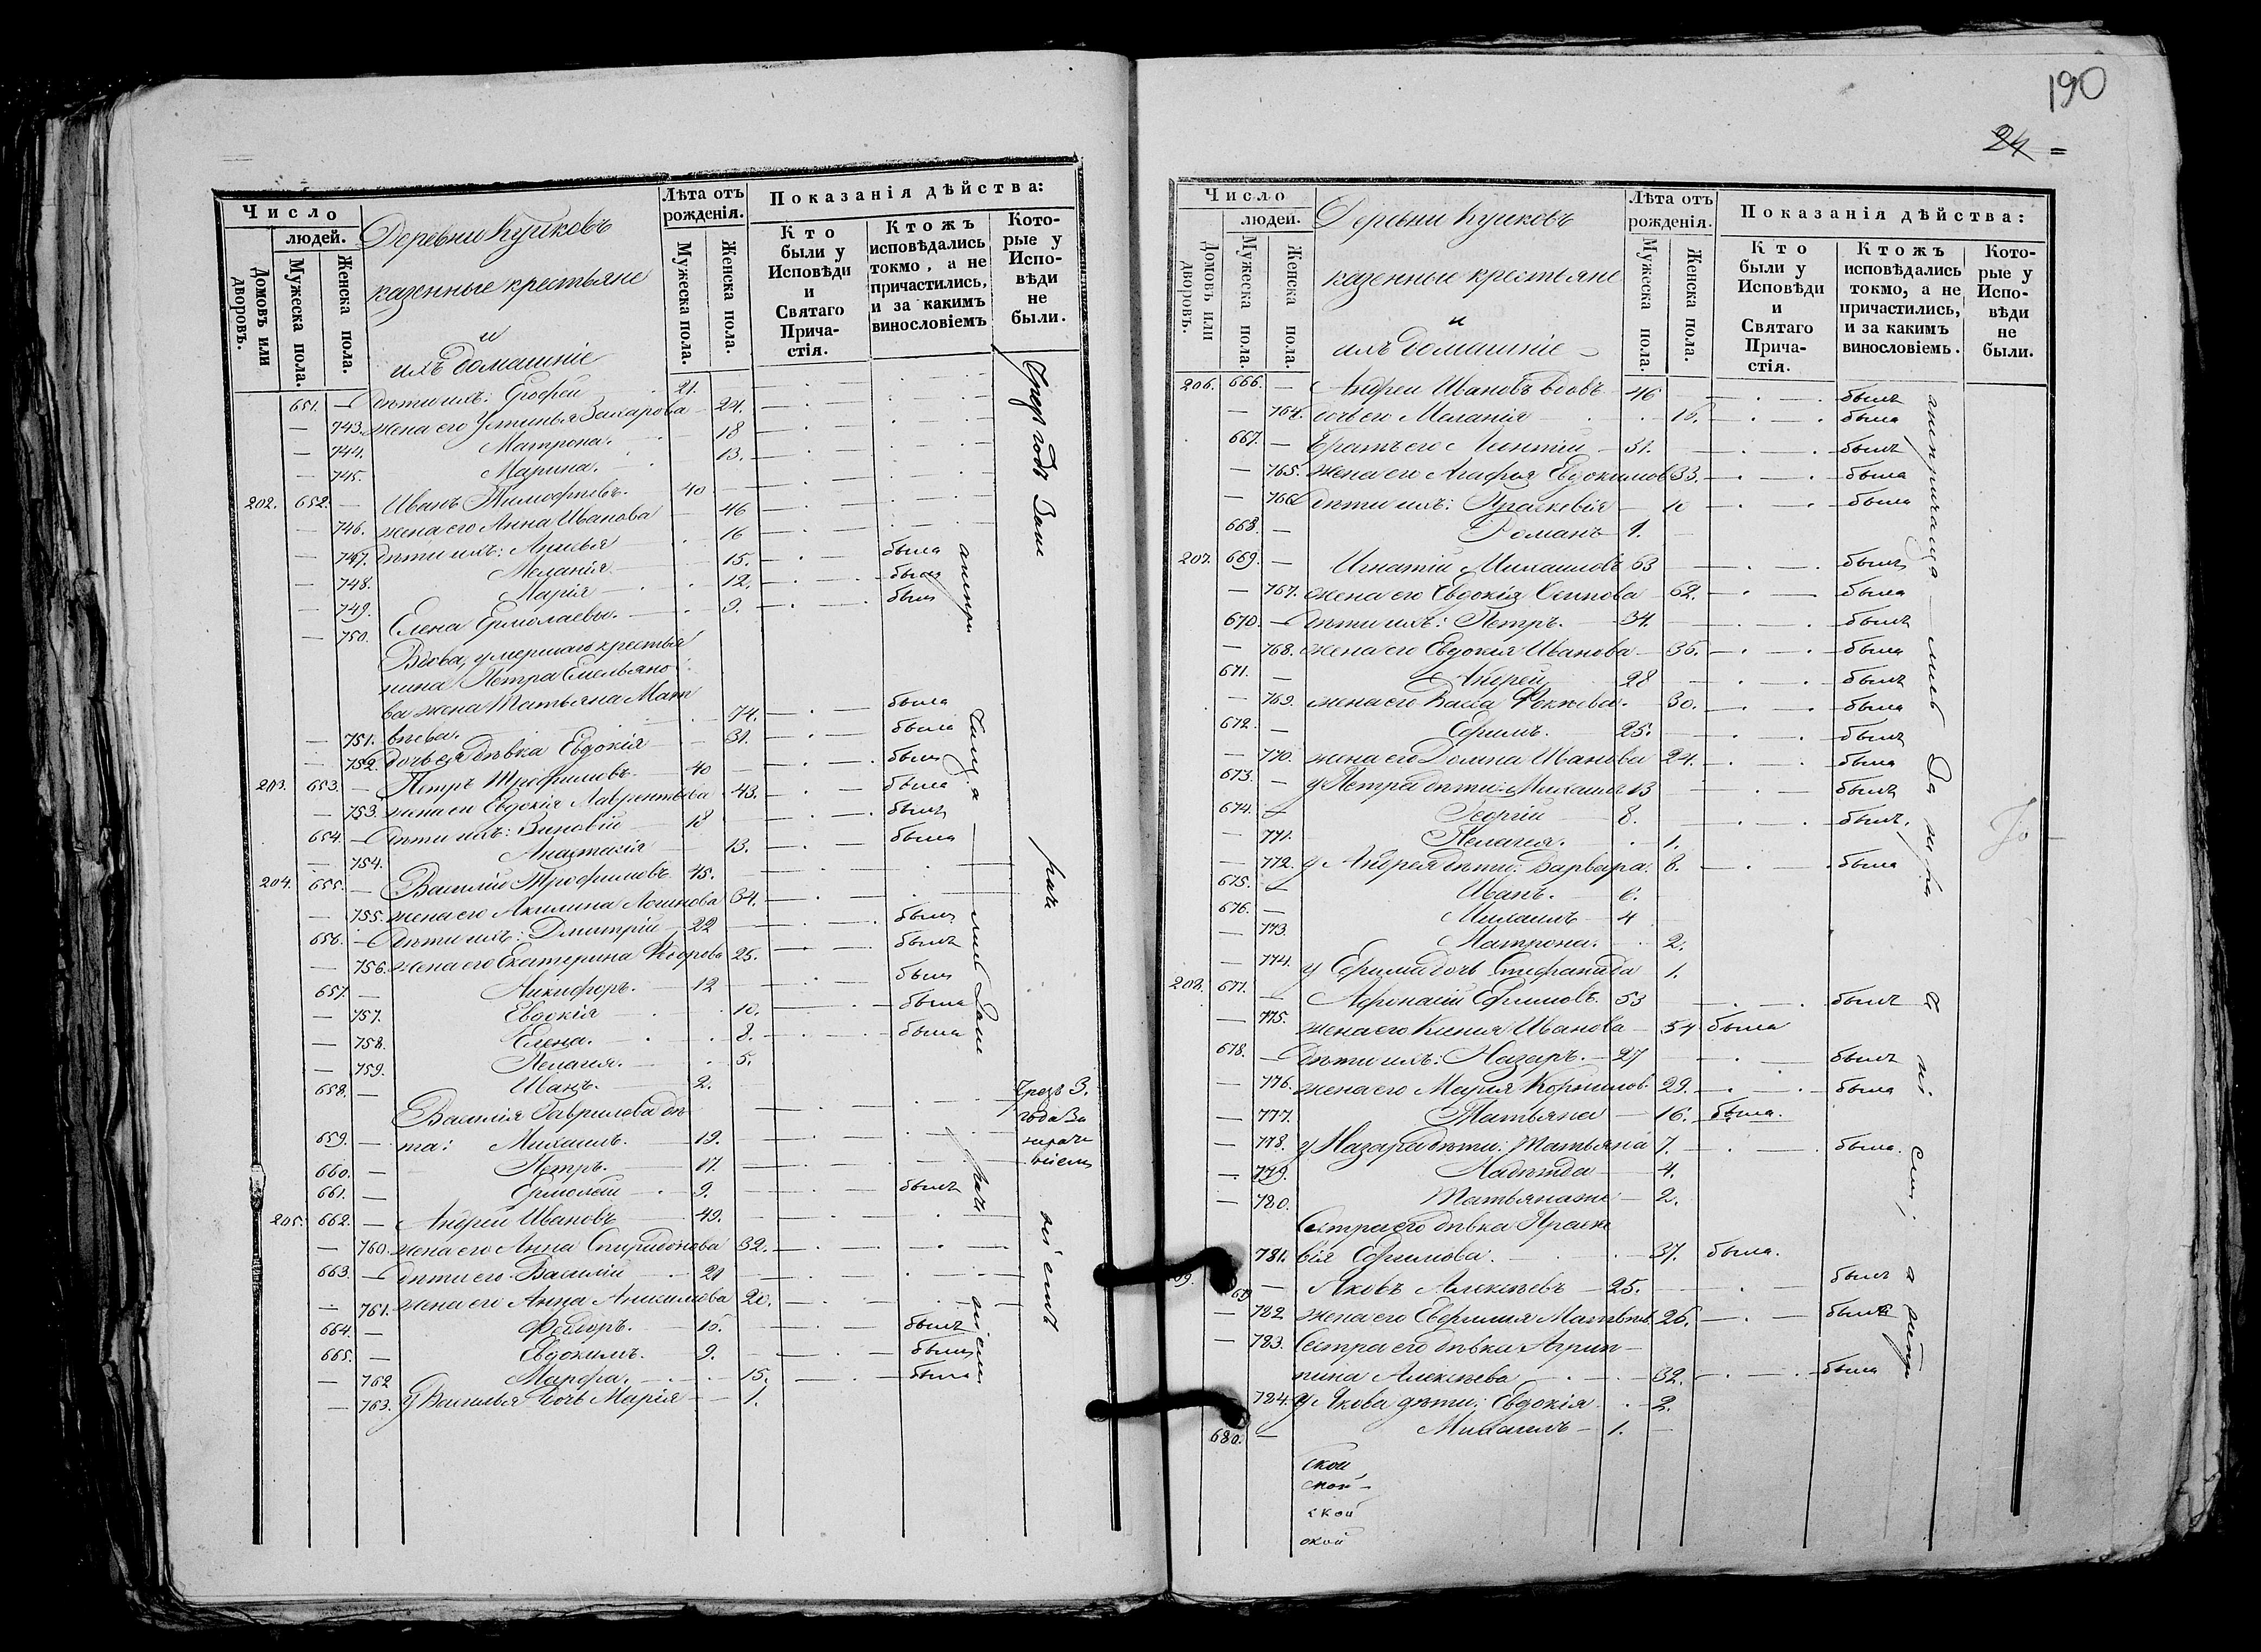 190
24 =
Число
людей.
Домовъ или дворовъ.
Мужеска пола.
Женска пола.
Деревни Кушковъ
казенные крестьяне
и
ихъ домашніе
Лѣта отъ рожденія.
Мужеска пола.
Женска пола.
Показанія дѣйства:
Кто были у Исповѣди и Святаго Прича-стія.
Ктожъ исповѣдались токмо, а не причастились, и за какимъ винословіемъ
Кото-рые у Испо-вѣди не были.
651. — дѣти ихъ: Ерофей 21.
— 743. жена его Устинья Захарова 24.
— 744. Матрона. 18
— 745. Марина. 13.
202. 652. — Иванъ Тимофѣевъ. 40
— 746. жена его Анна Иванова 46
— 747. дѣти ихъ: Анисья 16
— 748. Меланія 15. была
— 749. Марія 12. была
— 750. Елена Ермолаевы. 9. была
Вдова, умершаго крестья
нина Петра Емельяно
ва жена Татьяна Мат
— 751. вѣева. 74. была
— 752. дочь ея дѣвка Евдокія 31. была
203. 653. — Петръ Трофимовъ. 40 былъ
— 753. жена его Евдокія Лаврентьева 43. была
654. — дѣти ихъ: Зиновій 18 былъ
— 754. Анастасія 13. была
204. 655. — Василій Трофимовъ 45.
— 755. жена его Акилина Логинова 34.
656. — дѣти ихъ: Дмитрій 22 былъ
— 756. жена его Екатерина 25. была
657. — Никифоръ. 12 былъ
— 757. Евдокія 10. была
— 758. Елена. 8. была
— 759. Пелагея. 5.
658. — Иванъ. 2.
Василія Гаврилова дѣ
659. — та: Михаилъ. 19.
660. — Петръ. 17.
661. — Ермолай 9. былъ
205. 662. — Андрей Ивановъ 49.
— 760. жена его Анна Спиридонова 32.
663. — дѣти его Василій 21
— 761. жена его Анна Анисимова 20.
664. — Федоръ. 15. былъ
665. — Евдокимъ. 9. былъ
— 762 Марфа. 15. была
— 763. у Василья дочь Марія 1.
Чрезъ 3.
года за
нераче
ніемъ
Число
людей.
Домовъ или дворовъ.
Мужеска пола.
Женска пола.
Деревни Кушковъ
казенные крестьяне
и
ихъ домашніе
Лѣта отъ рожденія.
Мужеска пола
Женска пола.
Показанія дѣйства:
Кто были у Исповѣди и Святаго Прича-стія.
Ктожъ исповѣдались токмо, а не причастились, и за какимъ винословіемъ.
Кото-рые у Испо-вѣди не были.
206. 666. — Андрей Ивановъ вдовъ 46 былъ
— 764. дочь его Меланія 15. была
667. — братъ его Леонтій 31. былъ
— 765. жена его Агафья Евдокимов 33. была
— 766 дѣти ихъ: Праскевія 10 была
668. — Романъ 1.
207. 669. — Игнатій Михаиловъ 63 былъ
— 767. жена его Евдокія Осипова 62. была
670. — дѣти ихъ: Петръ. 34. былъ
— 768. жена его Евдокія Иванова 36. была
671. — Андрей 28 былъ
— 769. жена его Васса Фокѣева. 30. была
672. — Ефимъ. 25. былъ
— 770. жена его Домна Иванова 24. была
673. — у Петра дѣти: Михаилъ 13 былъ
674. — Георгій 8. былъ.
— 771. Пелагея. 1.
— 772. у Андрея дѣти: Варвара. 8. была
675. — Иванъ. 6.
676. — Михаилъ 4
— 773. Матрона. 2.
— 774. у Ефима дочь Стефанида 1.
208. 677. — Афонасій Ефимовъ. 53 былъ
— 775. жена его Ксенія Иванова 54 была
678. — дѣти ихъ: Назаръ. 27 былъ
— 776. жена его Марія Корнилов. 29. была
— 777. Татьяна 16. была.
— 778. у Назара дѣти: Татьяна 7. была.
— 779. Надежда 4.
— 780. Татьяна же 2.
Сестра его дѣвка Праске
781. вія Ефимова. 37. была.
— Яковъ Алексѣевъ 25. былъ
— 782 жена его Евфимія Матвѣев. 26. была
— 783. Сестра его дѣвка Агрип-
пина Алексѣева 32. была
784. у Якова дѣти: Евдокія 2.
680. — Михаилъ 1.
ской
ской
ской
ской